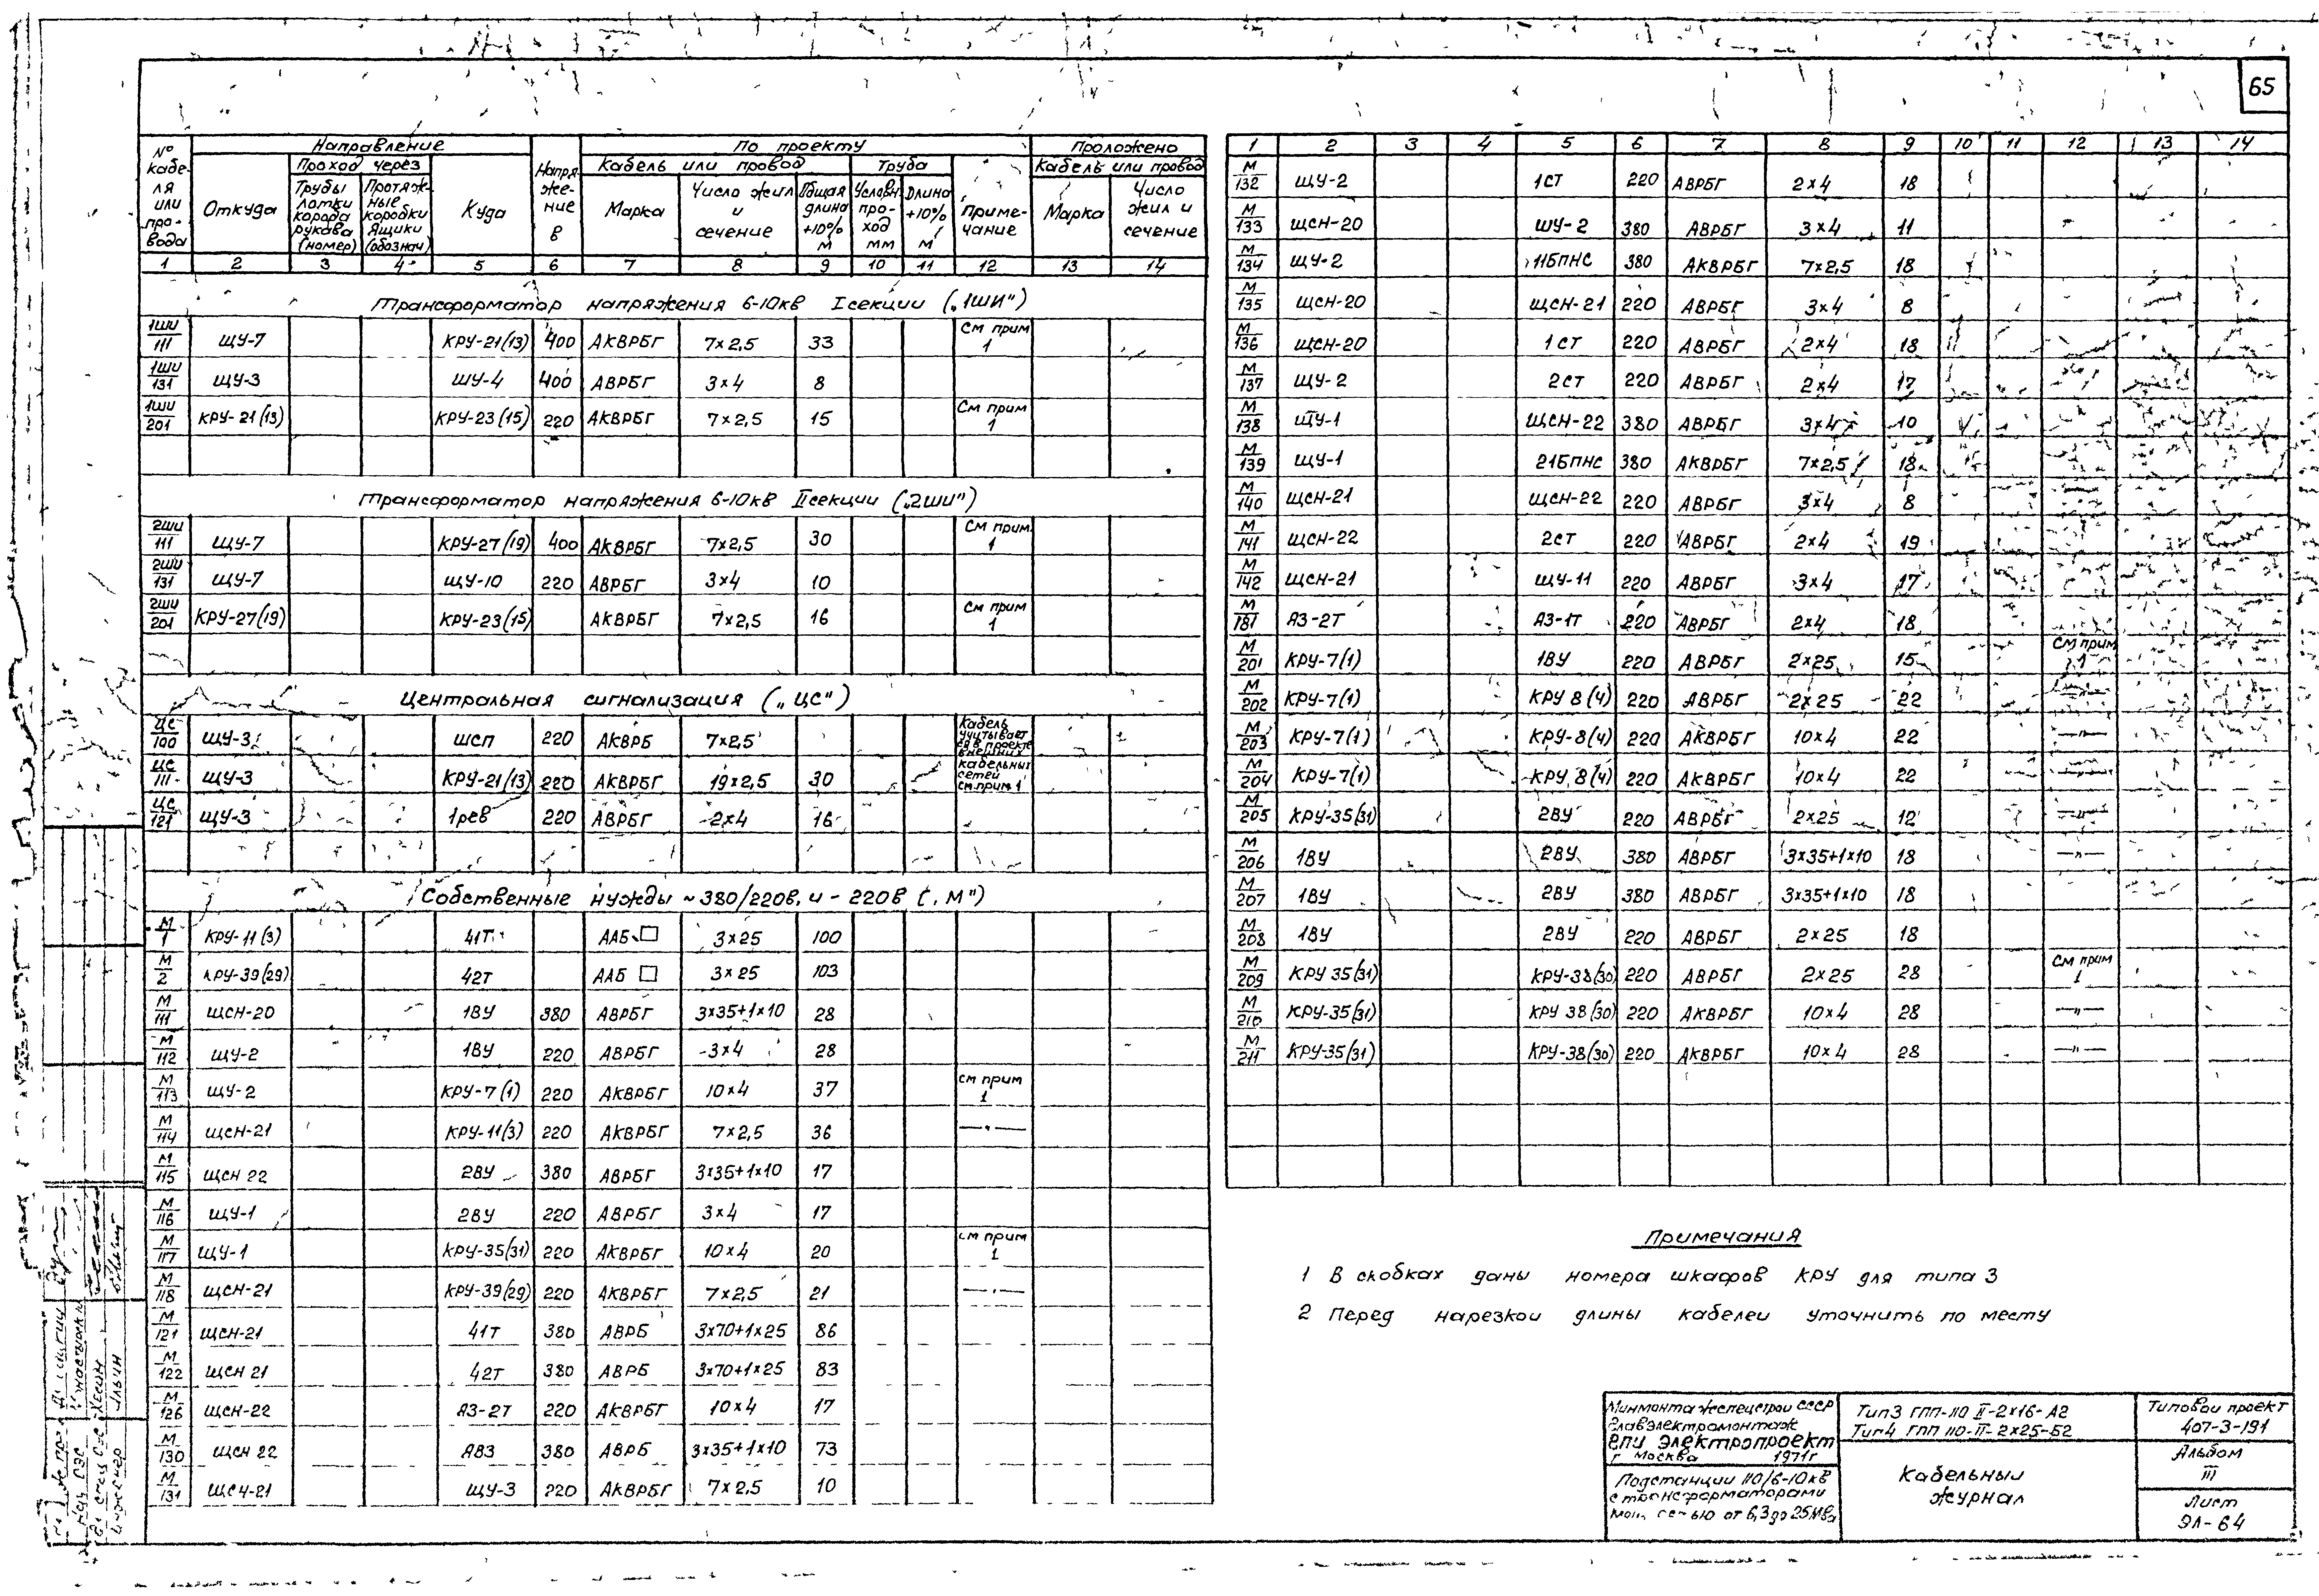 65
№ кабеля или провода | Направление | Напряжение в | По проекту | Проложено
Проход через | Кабель или провод | Труба | Кабель или провод
Откуда | Трубы лотки короба рукава (номер) | Протяжные коробки Ящики (обознач) | Куда | Марка | Число жил и сечение | Общая длина +10% м | Условн проход мм | Длина +10% м | Примечание | Марка | Число жил и сечение
1 2 3 4 5 6 7 8 9 10 11 12 13 14
Трансформатор напряжения 6-10кв I секции („1ШИ")
1ШИ/111 ЩУ-7 КРУ-21(13) 400 АКВРБГ 7×2,5 33 См прим 1
1ШИ/131 ЩУ-3 ШУ-4 400 АВРБГ 3×4 8
1ШИ/201 КРУ-21(13) КРУ-23(15) 220 АКВРБГ 7×2,5 15 См прим 1
Трансформатор напряжения 6-10кв II секции („2ШИ")
2ШИ/111 ЩУ-7 КРУ-27(19) 400 АКВРБГ 7×2,5 30 См прим. 1
2ШИ/131 ЩУ-7 ЩУ-10 220 АВРБГ 3×4 10
2ШИ/201 КРУ-27(19) КРУ-23(15) АКВРБГ 7×2,5 16 См прим 1
Центральная сигнализация („ЦС")
ЦС/100 ЩУ-3 ШСП 220 АКВРБ 7×2,5 Кабель учитывается в проекте внешних
ЦС/111 ЩУ-3 КРУ-21(13) 220 АКВРБГ 19×2,5 30 кабельных сетей см.прим 1
ЦС/121 ЩУ-3 1рев 220 АВРБГ 2×4 16
Собственные нужды ~380/220в. и -220в („М")
М/1 КРУ-11(3) 41Т ААБ□ 3×25 100
М/2 КРУ-39(29) 42Т ААБ □ 3×25 103
М/111 ЩСН-20 1ВУ 380 АВРБГ 3×35+1×10 28
М/112 ЩУ-2 1ВУ 220 АВРБГ 3×4 28
М/113 ЩУ-2 КРУ-7(1) 220 АКВРБГ 10×4 37 см прим 1
М/114 ЩСН-21 КРУ-11(3) 220 АКВРБГ 7×2,5 36 —"—
М/115 ЩСН 22 2ВУ 380 АВРБГ 3×35+1×10 17
М/116 ЩУ-1 2ВУ 220 АВРБГ 3×4 17
М/117 ЩУ-1 КРУ-35(31) 220 АКВРБГ 10×4 20 см прим 1
М/118 ЩСН-21 КРУ-39(29) 220 АКВРБГ 7×2,5 21 —"—
М/121 ЩСН-21 41Т 380 АВРБ 3×70+1×25 86
М/122 ЩСН 21 42Т 380 АВРБ 3×70+1×25 83
М/126 ЩСН-22 ЯЗ-2Т 220 АКВРБГ 10×4 17
М/130 ЩСН 22 ЯВЗ 380 АВРБ 3×35+1×10 73
М/131 ЩСН-21 ЩУ-3 220 АКВРБГ 7×2,5 10
1 2 3 4 5 6 7 8 9 10 11 12 13 14
М/132 ЩУ-2 1СТ 220 АВРБГ 2×4 18
М/133 ЩСН-20 ШУ-2 380 АВРБГ 3×4 11
М/134 ЩУ-2 11БПНС 380 АКВРБГ 7×2,5 18
М/135 ЩСН-20 ЩСН-21 220 АВРБГ 3×4 8
М/136 ЩСН-20 1СТ 220 АВРБГ 2×4 18
М/137 ЩУ-2 2СТ 220 АВРБГ 2×4 17
М/138 ЩУ-1 ЩСН-22 380 АВРБГ 3×4 10
М/139 ЩУ-1 21БПНС 380 АКВРБГ 7×2,5 18
М/140 ЩСН-21 ЩСН-22 220 АВРБГ 3×4 8
М/141 ЩСН-22 2СТ 220 АВРБГ 2×4 19
М/142 ЩСН-21 ЩУ-11 220 АВРБГ 3×4 17
М/181 ЯЗ-2Т ЯЗ-1Т 220 АВРБГ 2×4 18
М/201 КРУ-7(1) 1ВУ 220 АВРБГ 2×25 15 См прим 1
М/202 КРУ-7(1) КРУ 8(4) 220 АВРБГ 2×25 22 —"—
М/203 КРУ-7(1) КРУ-8(4) 220 АКВРБГ 10×4 22 —"—
М/204 КРУ-7(1) КРУ 8(4) 220 АКВРБГ 10×4 22 —"—
М/205 КРУ-35(31) 2ВУ 220 АВРБГ 2×25 12 —"—
М/206 1ВУ 2ВУ 380 АВРБГ 3×35+1×10 18 —"—
М/207 1ВУ 2ВУ 380 АВРБГ 3×35+1×10 18
М/208 1ВУ 2ВУ 220 АВРБГ 2×25 18
М/209 КРУ 35(31) КРУ-38(30) 220 АВРБГ 2×25 28 См прим 1
М/210 КРУ-35(31) КРУ 38(30) 220 АКВРБГ 10×4 28 —"—
М/211 КРУ-35(31) КРУ-38(30) 220 АКВРБГ 10×4 28 —"—
Примечания
1 В скобках даны номера шкафов КРУ для типа 3
2 Перед нарезкой длины кабелей уточнить по месту
Минмонтажспецстрой СССР
Главэлектромонтаж
ВПИ Электропроект
г Москва 1971г
Подстанции 110/6-10кв
с трансформаторами
мощностью от 6,3 до 25 Мва
Тип3 ГПП-110 II-2×16-А2
Тип4 ГПП 110-II-2×25-Б2
Кабельный
журнал
Типовой проект
407-3-191
Альбом
III
Лист
ЭЛ-64
Инженер Ильин